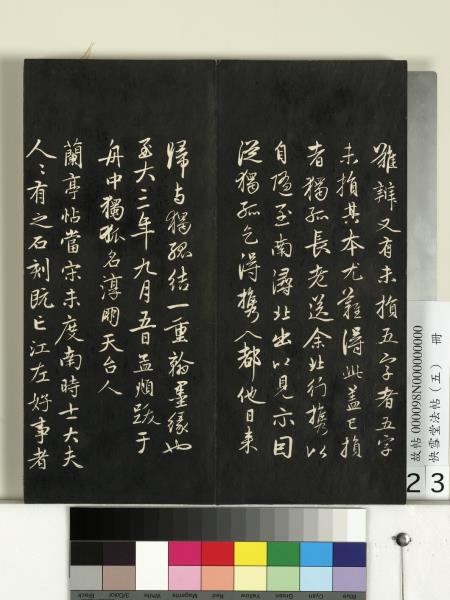 難辯又有未損五字者五字
未損其本尤難得此蓋已損
者獨孤長老送余北行攜以
自隨至南潯北出以見示因
從獨孤乞得攜入都他日來
歸與獨孤結一重翰墨緣也
至大三年九月五日孟頫跋于
舟中獨孤名淳朋天台人
蘭亭帖當宋未度南時士大夫
人〻有之石刻既亡江左好事者
故帖 000098N000000000
快雪堂法帖（五） 冊
2 3
Black
3/Color
White
Magenta
Red
Yellow
Green
Cyan
Blue